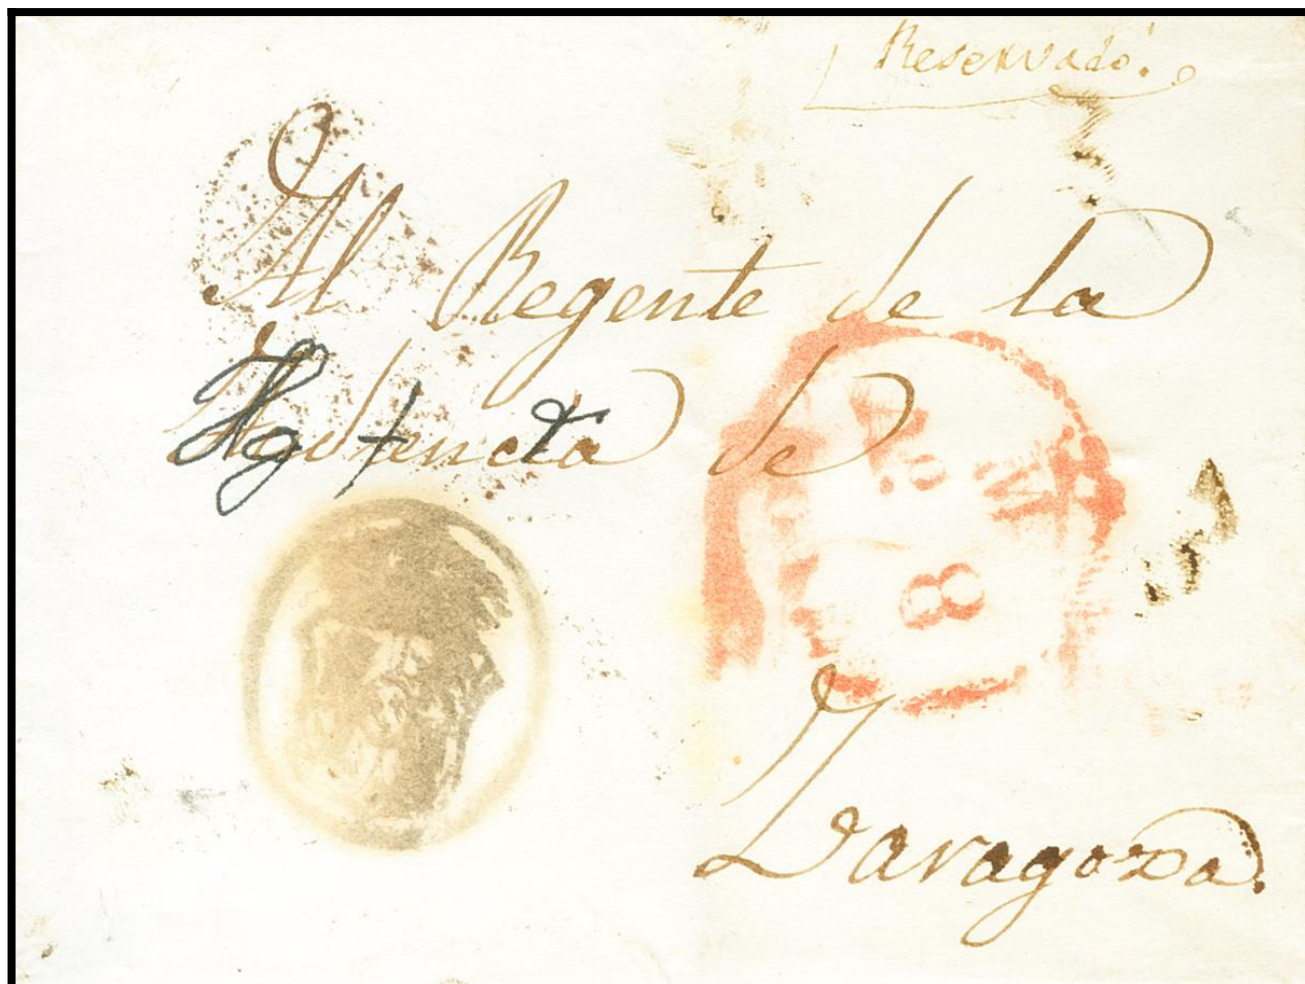 Reservado.
Al Regente de la
Audiencia de
8
Zaragoza.